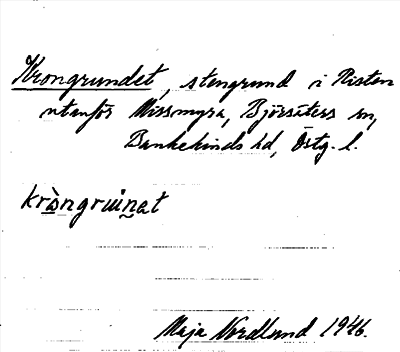 Krongrundet, stengrund i Risten
utanför Missmyra, Björsäters sn,
Bankekinds hd, Östg. l.
kròngruṅ̀nat
Maja Nordlund 1946.